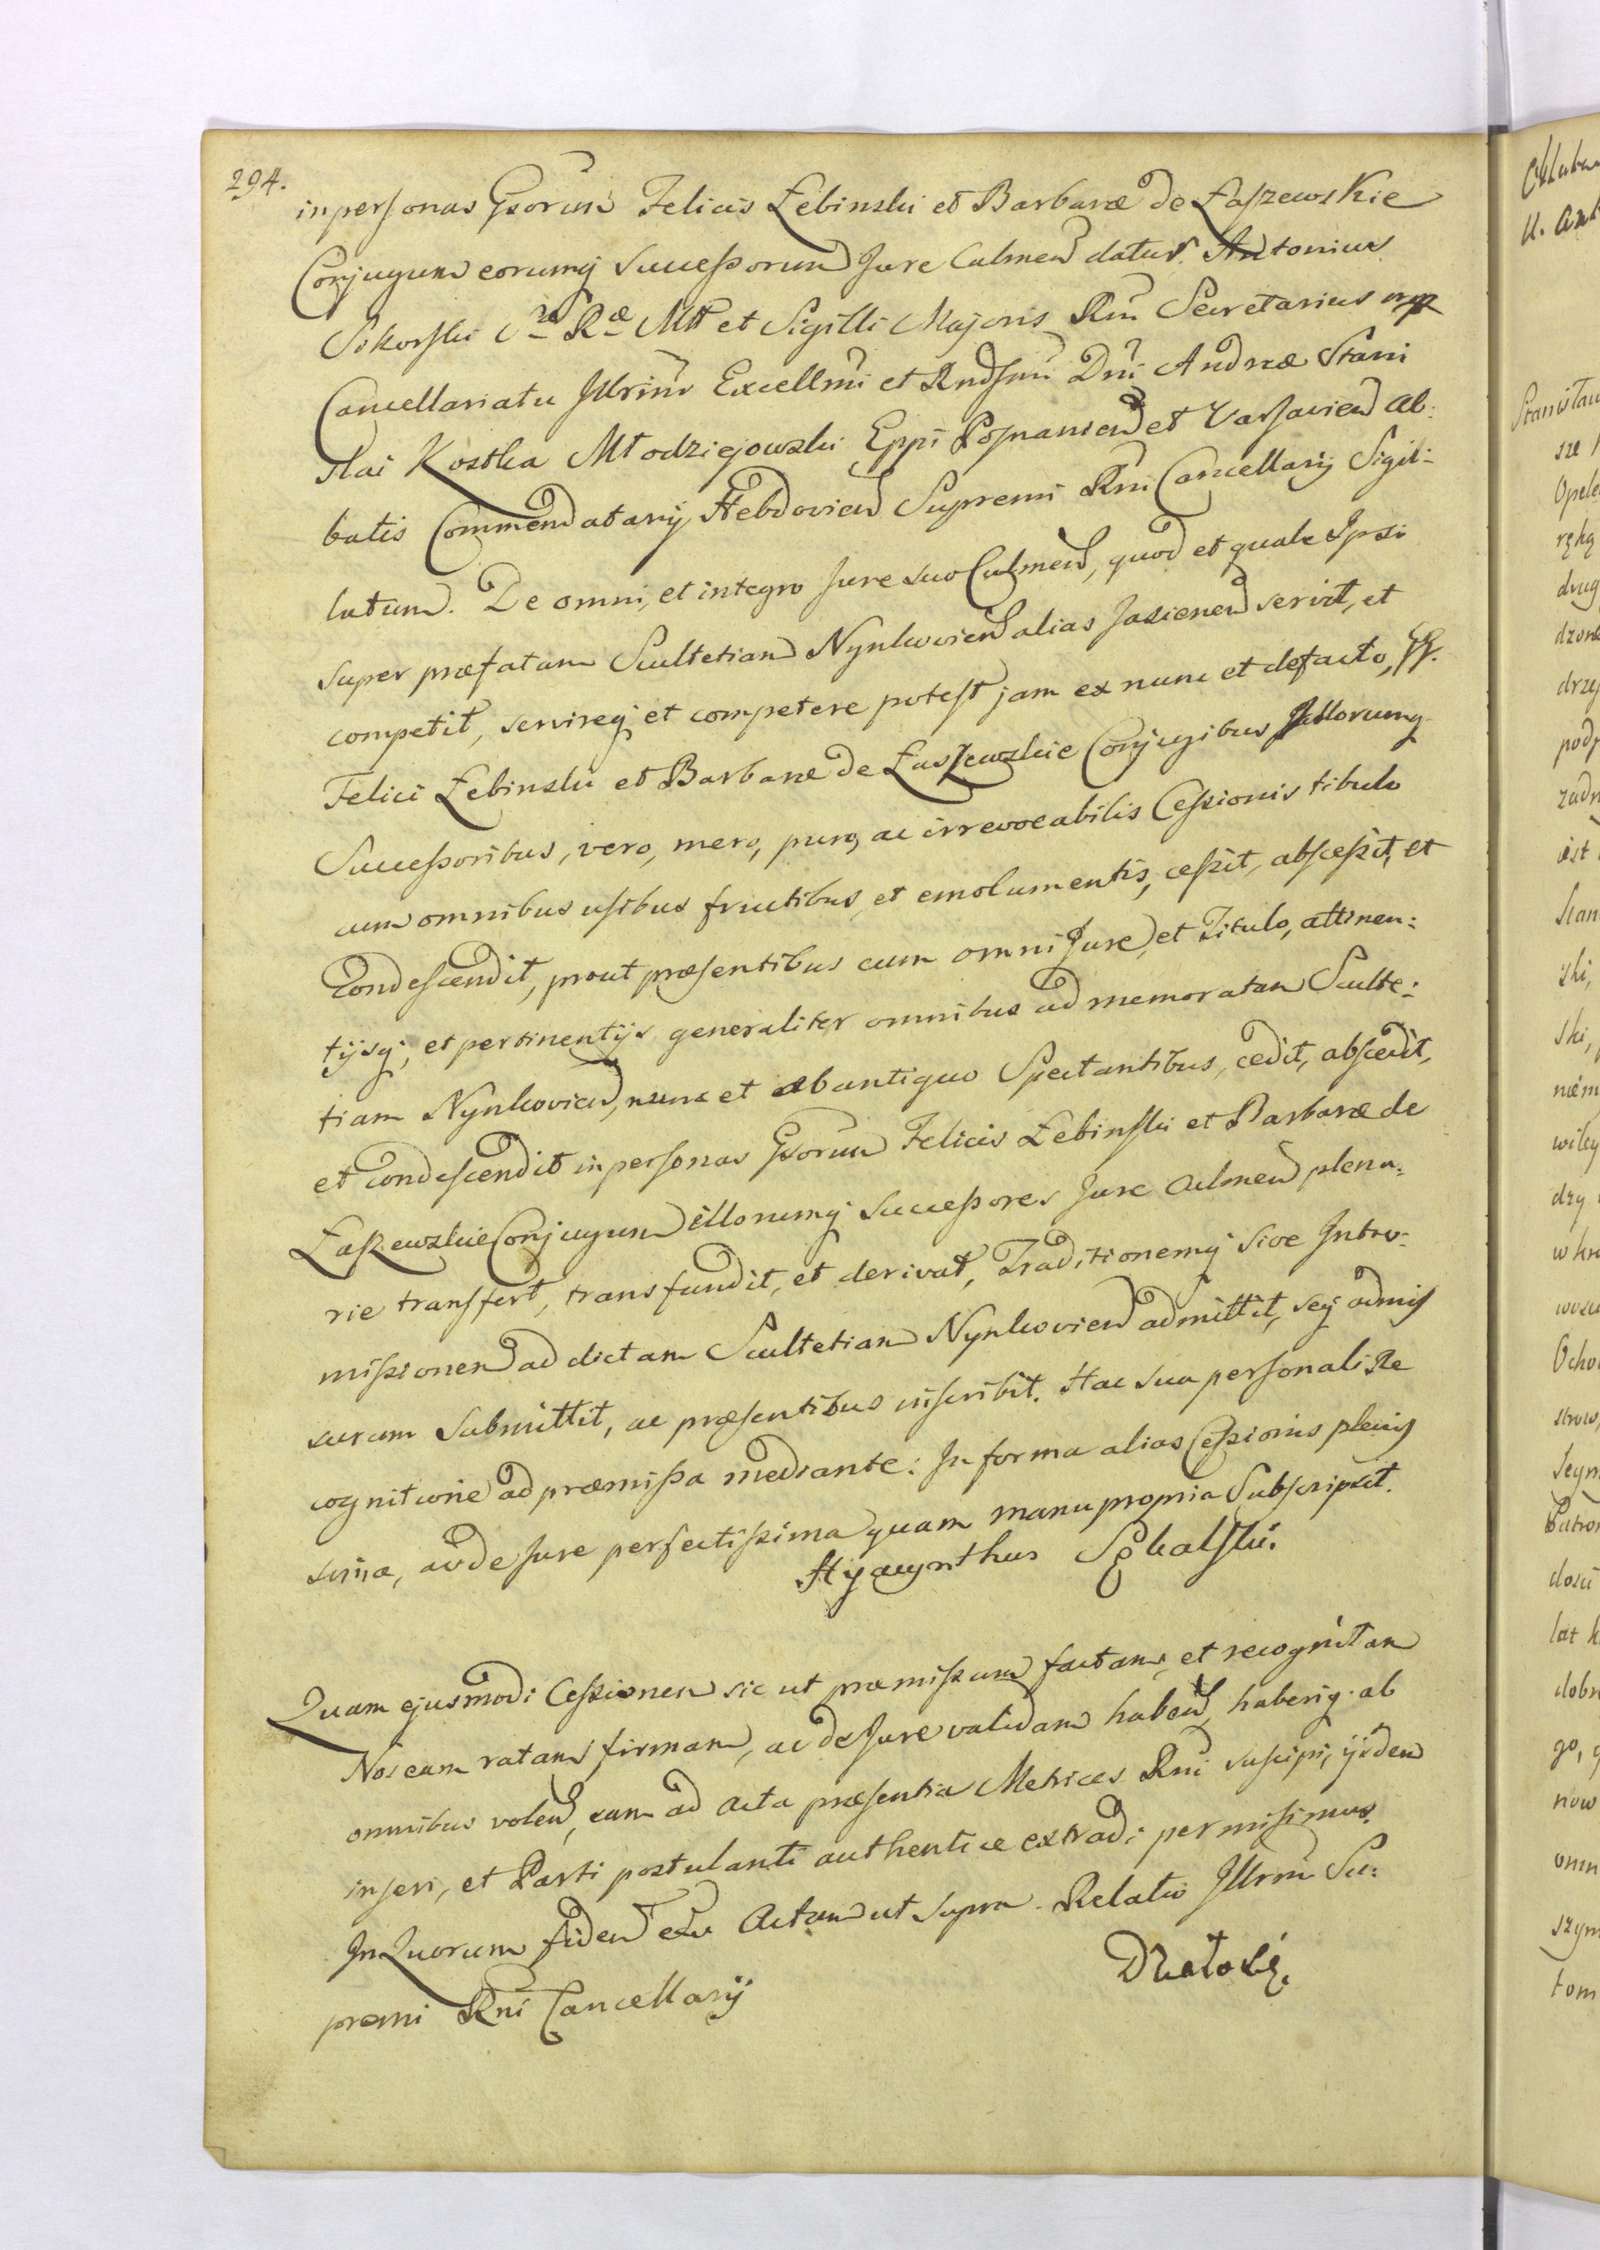 294.
in personas Gsorum Felicis Łebinski et Barbaræ de Łaszewskie
Conjugum eorumq́ Successorum Jure Culmen datus. Antonius
Sikorski S. R. Mtt et Sigilli Majoris Rni Secretarius mpr
Cancellariatu Illrimi Excellmi et Rndsmi Dni Andræ Stani
slai Kostka Młodziejowski Eppi Posnanien et Varsavien Ab:
batis Commendatarij Hebdovien Supremi Rni Cancellarij Sigil:
latum. De omni, et integro Jure suo Culmen, quod et quale Ipsi
super præfatam Scultetiam Nynkovien alias Jasienen servit, et
competit, servireq́ et competere potest jam ex nunc et defacto, GG.
Felici Łebinski et Barbaræ de Łaszewskie Conjugibus Illorumq
Successoribus, vero, mero, puro, ac irrevocabilis Cessionis titulo
cum omnibus usibus fructibus, et emolumentis, cessit, abscessit, et
Condescendit, prout præsentibus cum omni Jure, et Titulo, attinen:
tijsq́, et pertinentijs generaliter omnibus ad memoratam Sculte:
tiam Nynkovien, nunc et ab antiquo Spectantibus, cedit, abscedit,
et Condescendit in personas Gsorum Felicis Łebinski et Barbaræ de
Łaszewskie Conjugum illorumq́ Successores Jure Culmen plena:
rie transfert, transfundit, et derivat, Traditionemq́ sive Intro:
missionem ad dictam Scultetiam Nynkovien admittit, seq́ admis
surum Submittit, ac præsentibus inscribit. Hac sua personali Re
cognitione ad præmissa mediante: In forma alias Cessionis plenis
simæ, ac de Jure perfectissima quam manu propria Subscripsit.
Hyacynthus
Quam ejusmodi Cessionem sic ut præmissum factam, et recognitam
Nos eam ratam, firmam, ac de Jure validam haben, haberiq́ ab
omnibus volen, eam ad Acta præsentia Metrices Rni suscipi, ijsdem
inseri, et Parti postulanti authentice extradi permisimus.
In Quorum fidem Actum ut supra. Relatio Illrmi Su:
premi Rni Cancellarij